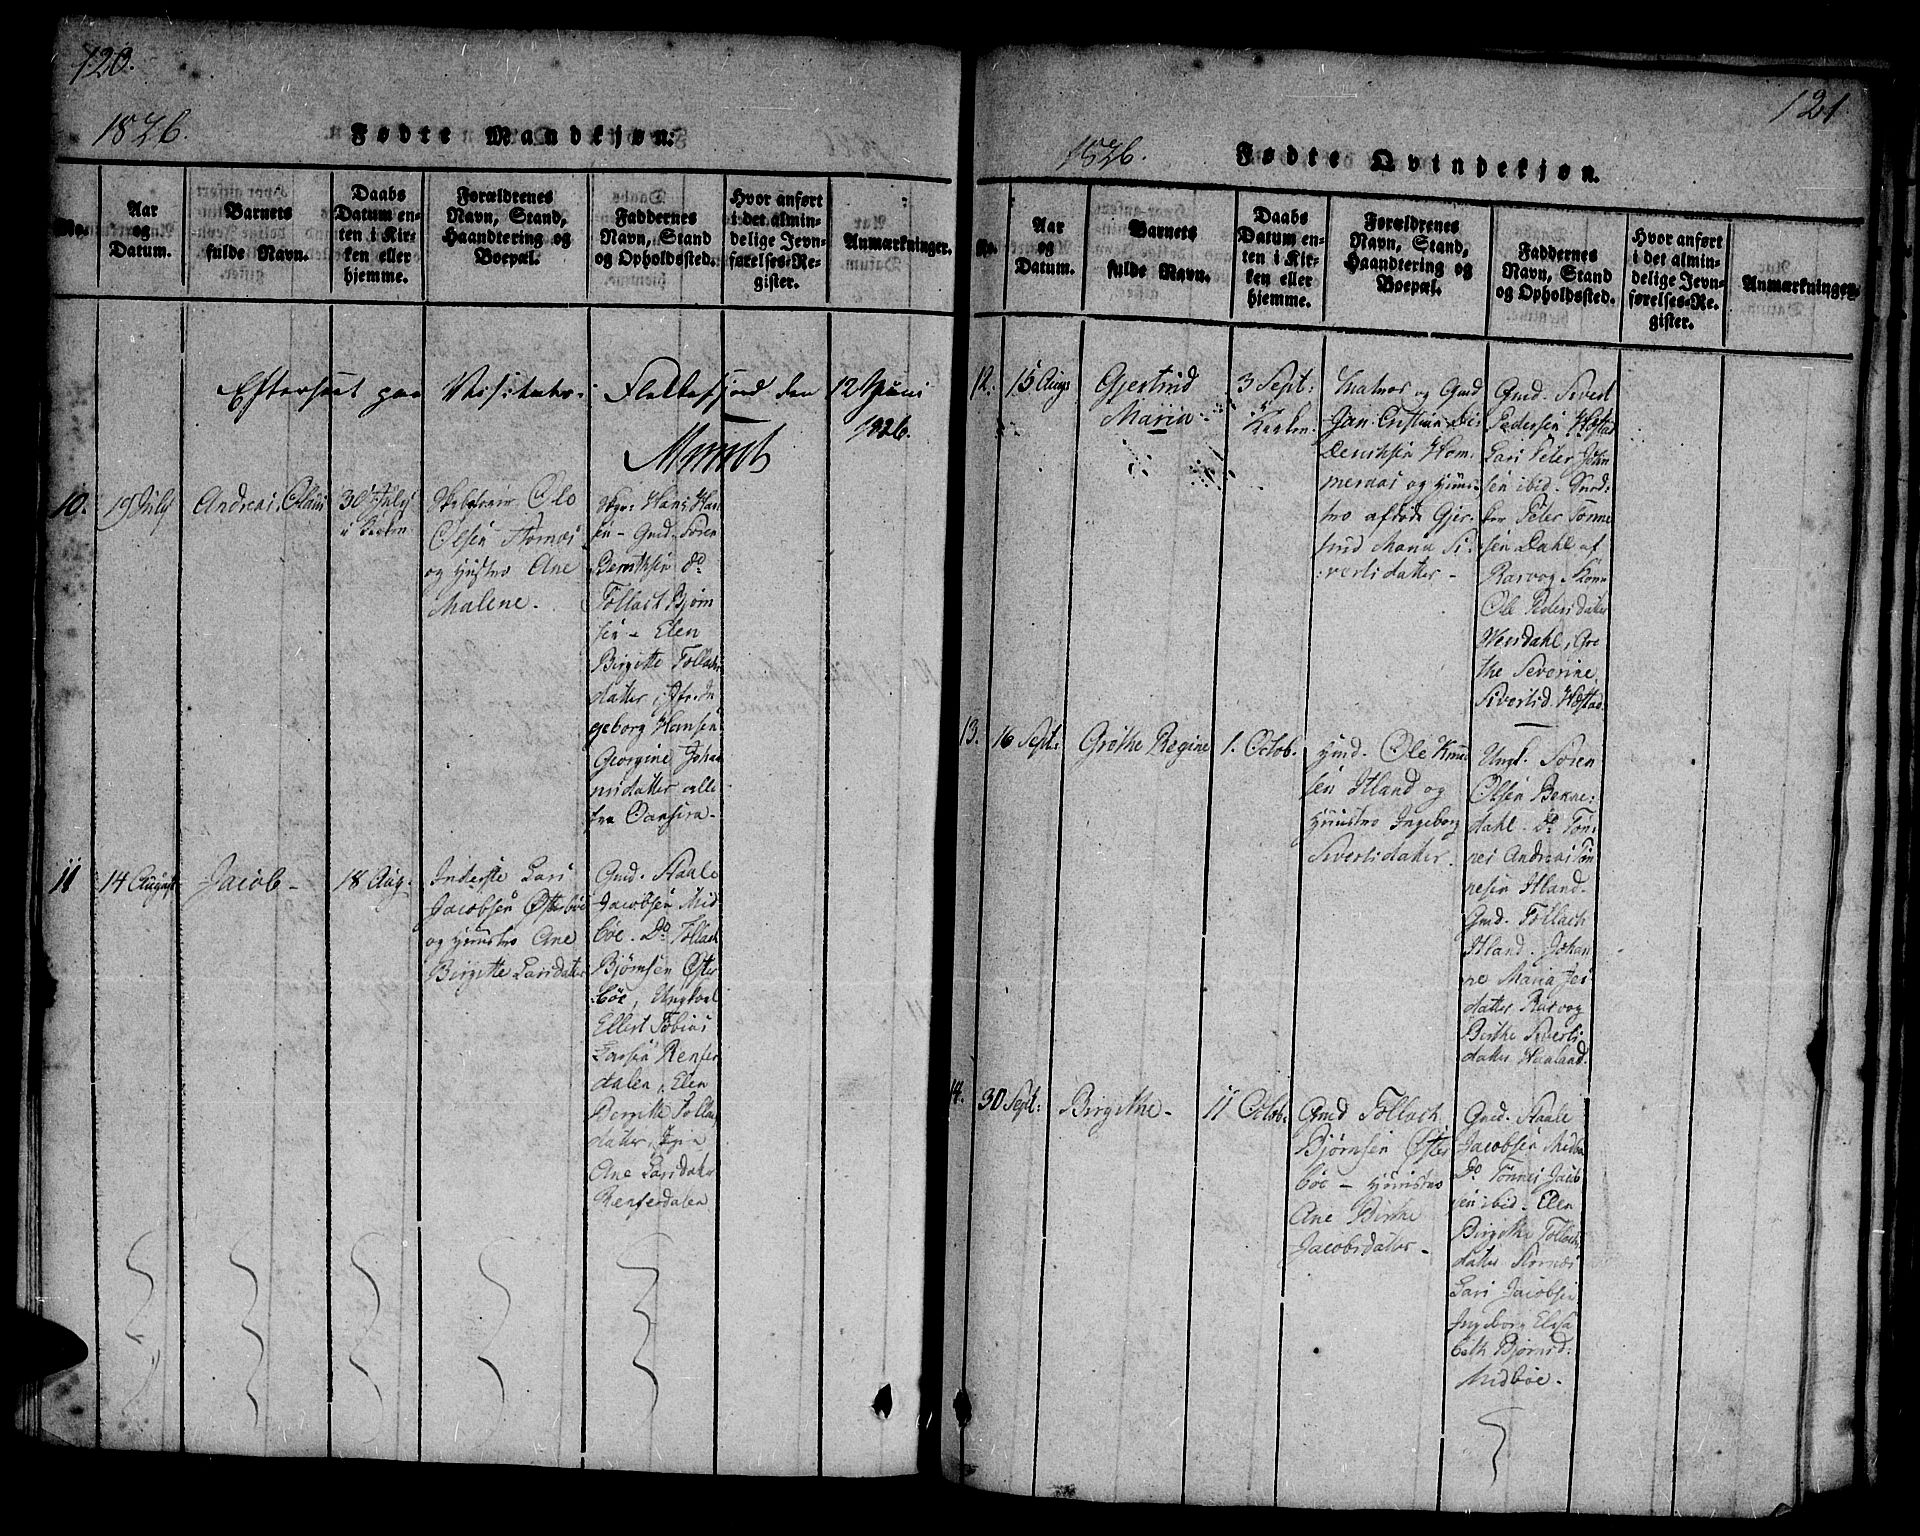 120.
1826.
Fødte Mandkjøn:
No.
Aar
og
Datum.
Barnets
fulde Navn.
Daabs
Datum en-
ten i Kir-
ken eller
hjemme.
Forældrenes
Navn, Stand,
Haandtering og
Boepæl.
Faddernes
Navn, Stand
og Opholdssted.
Hvor anført
i det almin-
delige Jevn-
førelses-Re-
gister.
Anmærkninger.
Efterseet paa Visitats. Flekkefjord den 12 Juni
1826.
10.
19 July
Andreas Olaus
30 July
i Kirken
Ole
Olsen
og Hustro Ane
Malene.
Hans Han
sen - Gmd. Sören
Berntsen do
Tollach Bjørn
sen - Elen
Birgitte Tollachs
datter,
geborg Hansen
Georgine Johan
nisdatter alle
fra
11
14 August
Jacob -
18 Aug.
Inderste Lars
Jacobsen Østerbøe
og Hustro Ane
Birgitte Larsdatter
Gmd. Staale
Jacobsen Mid
bøe. Do Tollach
Bjørnsen Øster
bøe, Ungkarl
Ellert Tobias
Larsen
dalen, Elen
Birgitte Tollachs
datter,
Ane Larsdatter
121
1826.
Fødte Qvindekjøn.
No.
Aar
og
Datum.
Barnets
fulde Navn.
Daabs
Datum en-
ten i Kir-
ken eller
hjemme.
Forældrenes
Navn, Stand,
Haandtering og
Boepæl.
Faddernes
Navn, Stand
og Opholdssted.
Hvor anført
i det almin-
delige Jevn-
førelses-Re-
gister.
Anmærkninger.
12.
15 Aug
Gjertrud
Maria -
3 Sept:
Kirken.
Matros og Gmd
Jan Cristian Di-
deriksen Hom-
mernæs og Hus-
tro afdøde Gjer-
trud Maria Si-
vertsdatter -
Gmd. Sivert
Pedersen Hæstad
Lars Peter Johan
sen ibid.
Peter Tønne
sen Dahl af
Rarvog
Ole Pedersdatter
Gre
the Severine
Sivertsd. Hæstad.
13.
16 Sept:
Grethe Regine
1. Octob.
Gmd. Ole Knud
sen Itland og
Hustro Ingeborg
Sivertsdatter.
Ungk. Sören
Olsen Bakke:
dahl. Do Tøn-
nes Andreas Tøn
nesen Itland.
Gmd. Tollach
Itland. Johan
ne Maria Jes
datter Rarvog
Birthe Siverts
datter Haaland.
14.
30 Sept:
Birgithe -
11 Octob.
Gmd Tollach
Bjørnsen Øster
bøe - Hustro
Ane Birthe
Jacobsdatter -
Gmd. Staale
Jacobsen Midbøe
Do Tønnes Jacob
sen ibid. Elen
Birgithe Tollachs
datter
Lars Jacobsen
Ingeborg Elisa
beth Bjørnsd:
Midbøe.